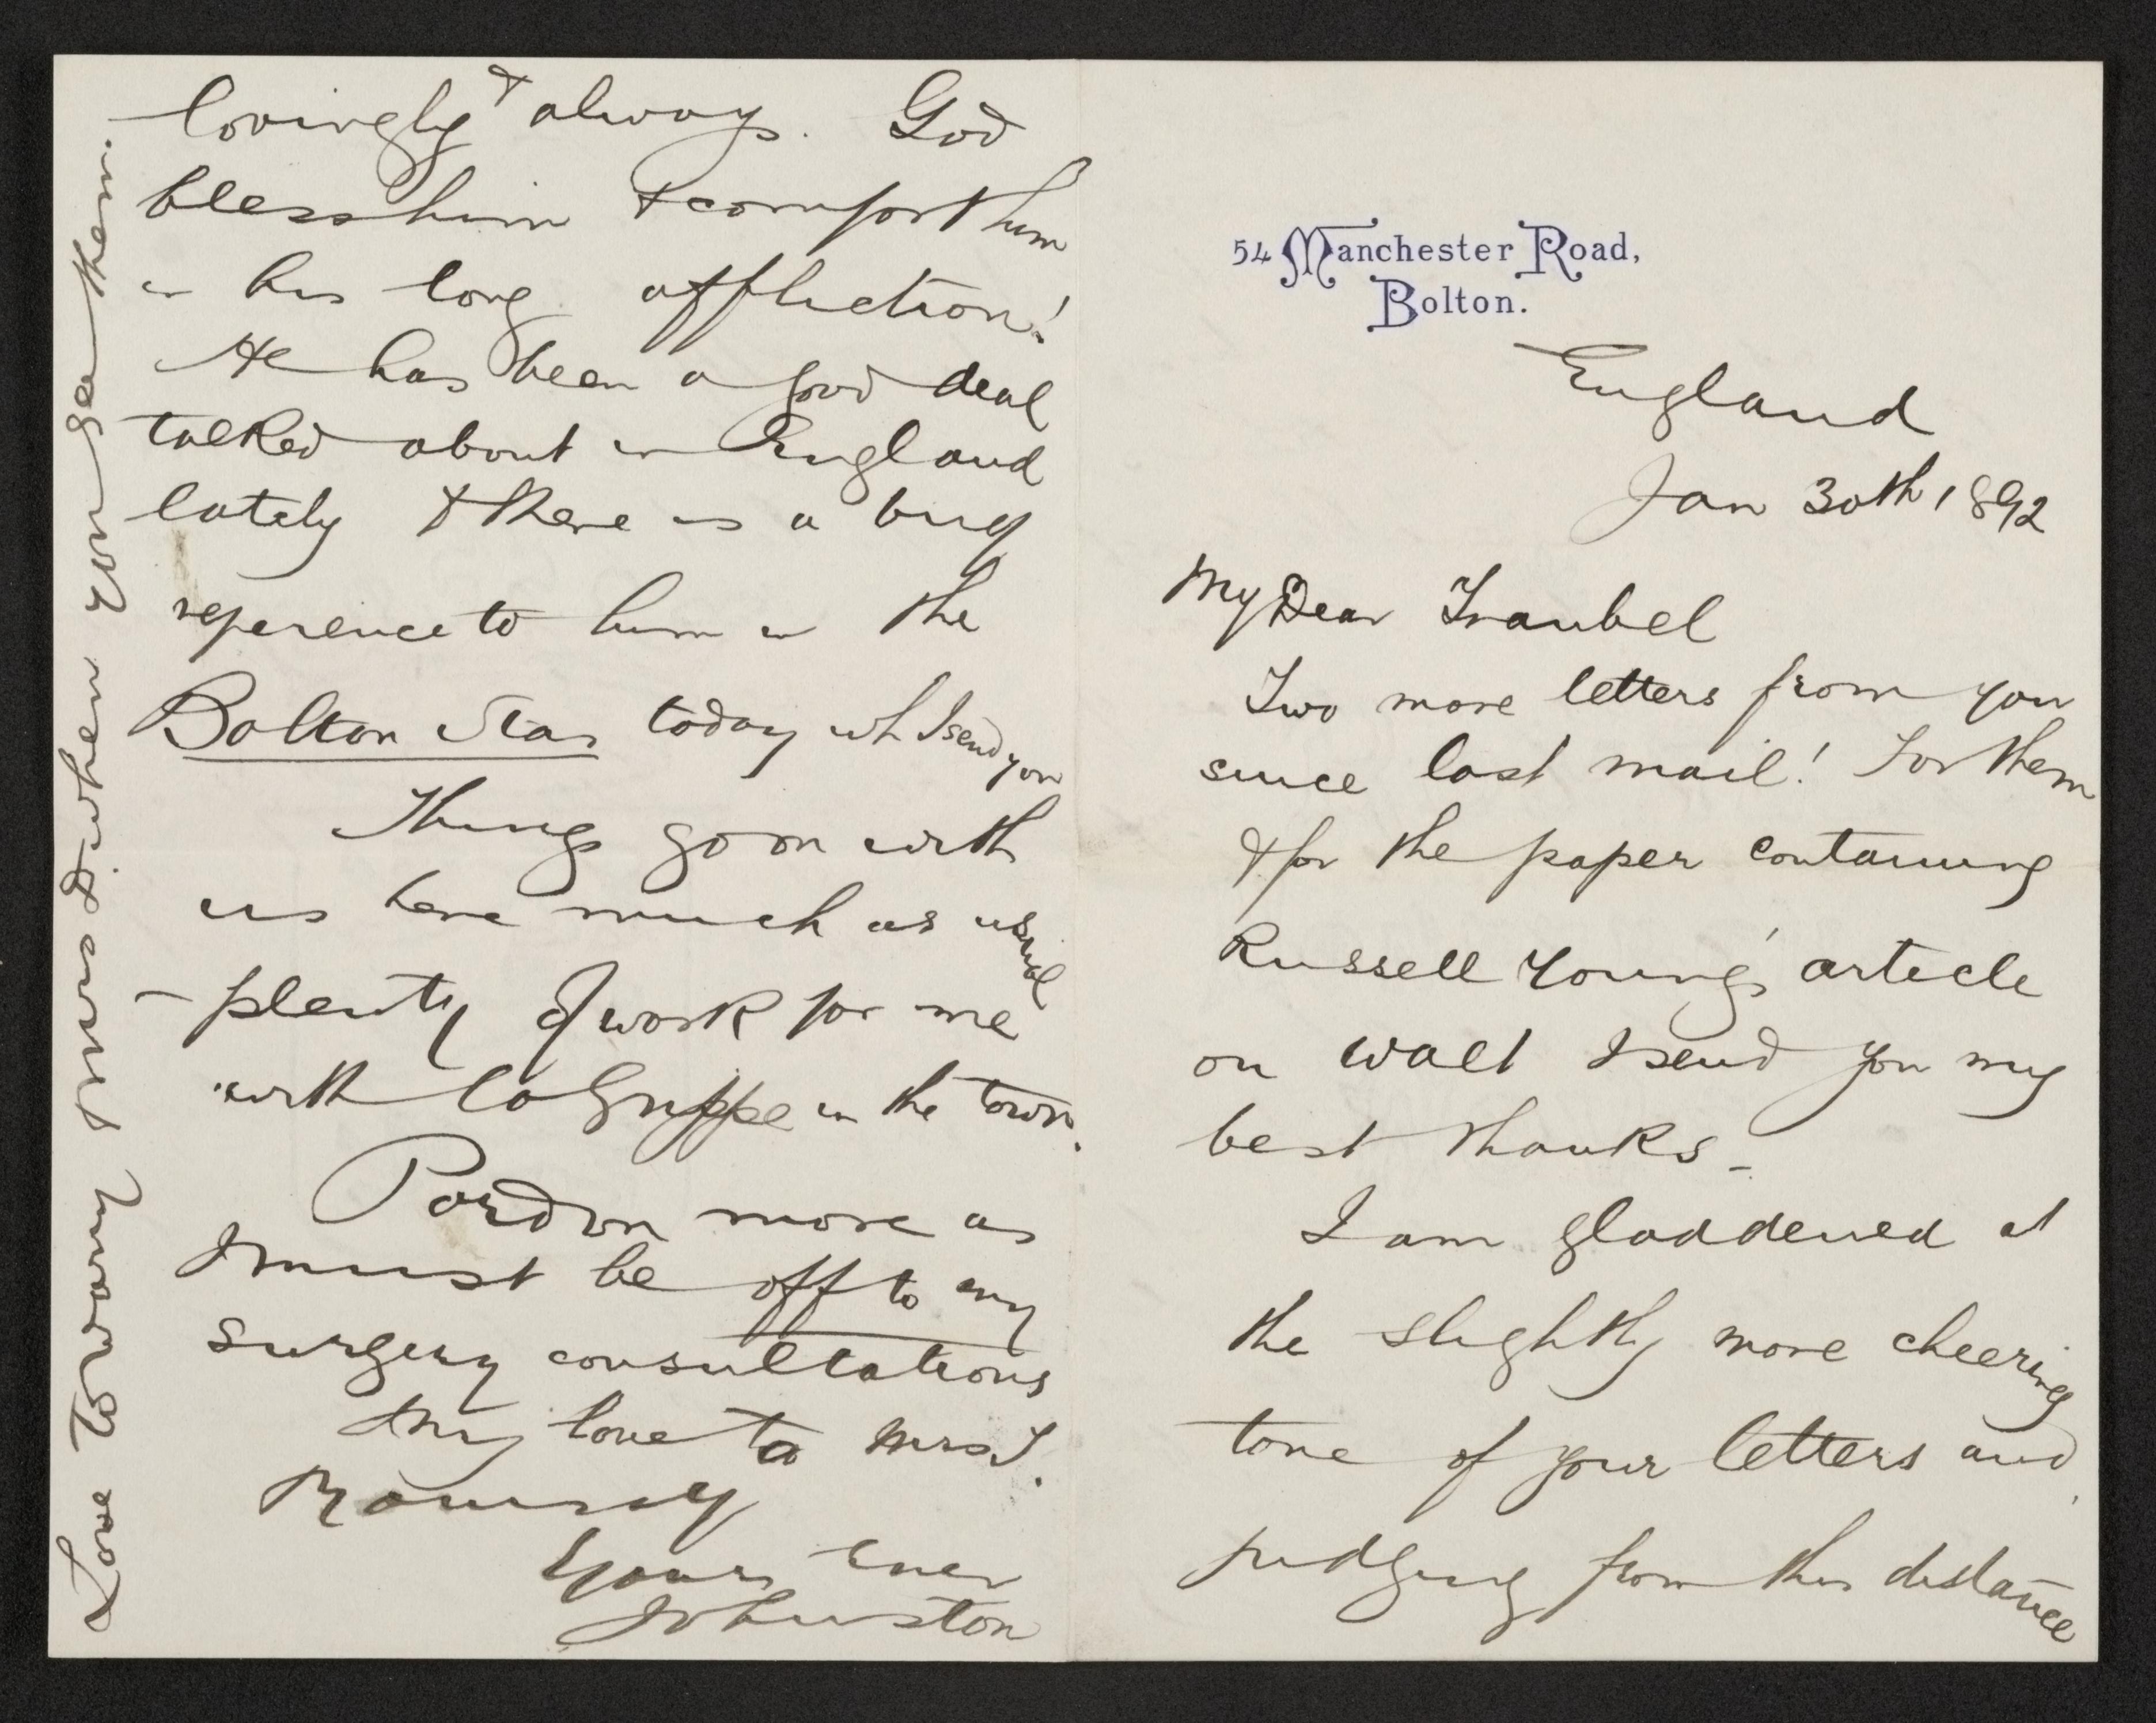 54 Manchester Road,
Bolton.
England
Jan 30th 1892
My Dear Traubel
Two more letters from you
since last mail! For them
& for the paper containing
Russell Young's article
on Walt I send you my
best thanks –
I am gladdened at
the slightly more cheering
tone of your letters and
judging from this distance
lovingly & always. God
bless him & comfort him
in his long affliction!
He has been a good deal
talked about in England
lately & there is a
reference to him in the
Bolton Star today wh I send you
Things go on with
us here much as usual
– plenty of work for me
with La Grippe in the town.
Pardon more as
I must be off to my
surgery consultations
My love to Mrs T.
Yours ever
Johnston
Love to Warry & Mrs D. when you see them.